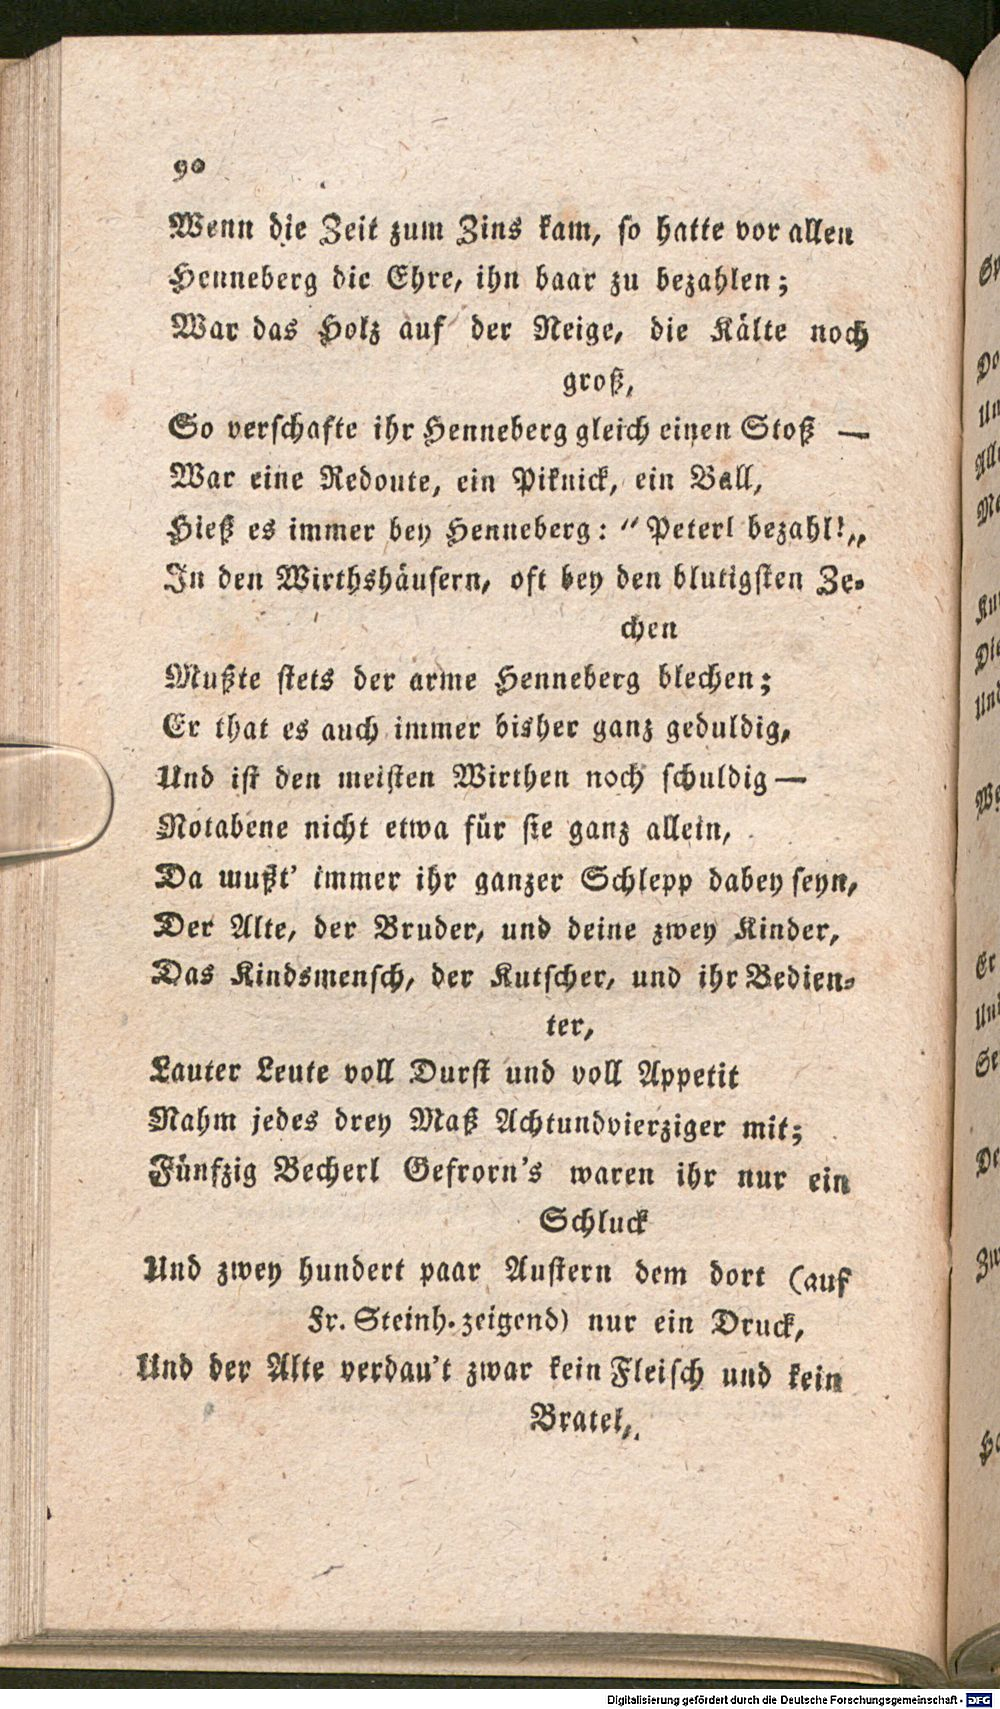 90
Wenn die Zeit zum Zins kam, so hatte vor allen
Henneberg die Ehre, ihn baar zu bezahlen;
War das Holz auf der Neige, die Kälte noch
groß,
So verschafte ihr Henneberg gleich einen Stoß —
War eine Redoute, ein Piknick, ein Ball,
Hieß es immer bey Henneberg: “Peterl bezahl!„
In den Wirthshäusern, oft bey den blutigsten Ze-
chen
Mußte stets der arme Henneberg blechen;
Er that es auch immer bisher ganz geduldig,
Und ist den meisten Wirthen noch schuldig —
Notabene nicht etwa für sie ganz allein,
Da mußt' immer ihr ganzer Schlepp dabey seyn,
Der Alte, der Bruder, und deine zwey Kinder,
Das Kindsmensch, der Kutscher, und ihr Bedien-
ter,
Lauter Leute voll Durst und voll Appetit
Nahm jedes drey Maß Achtundvierziger mit;
Fünfzig Becherl Gefrorn's waren ihr nur ein
Schluck
Und zwey hundert paar Austern dem dort (auf
Fr. Steinh. zeigend) nur ein Druck,
Und der Alte verdau't zwar kein Fleisch und kein
Bratel,
Digitalisierung gefördert durch die Deutsche Forschungsgemeinschaft - DFG